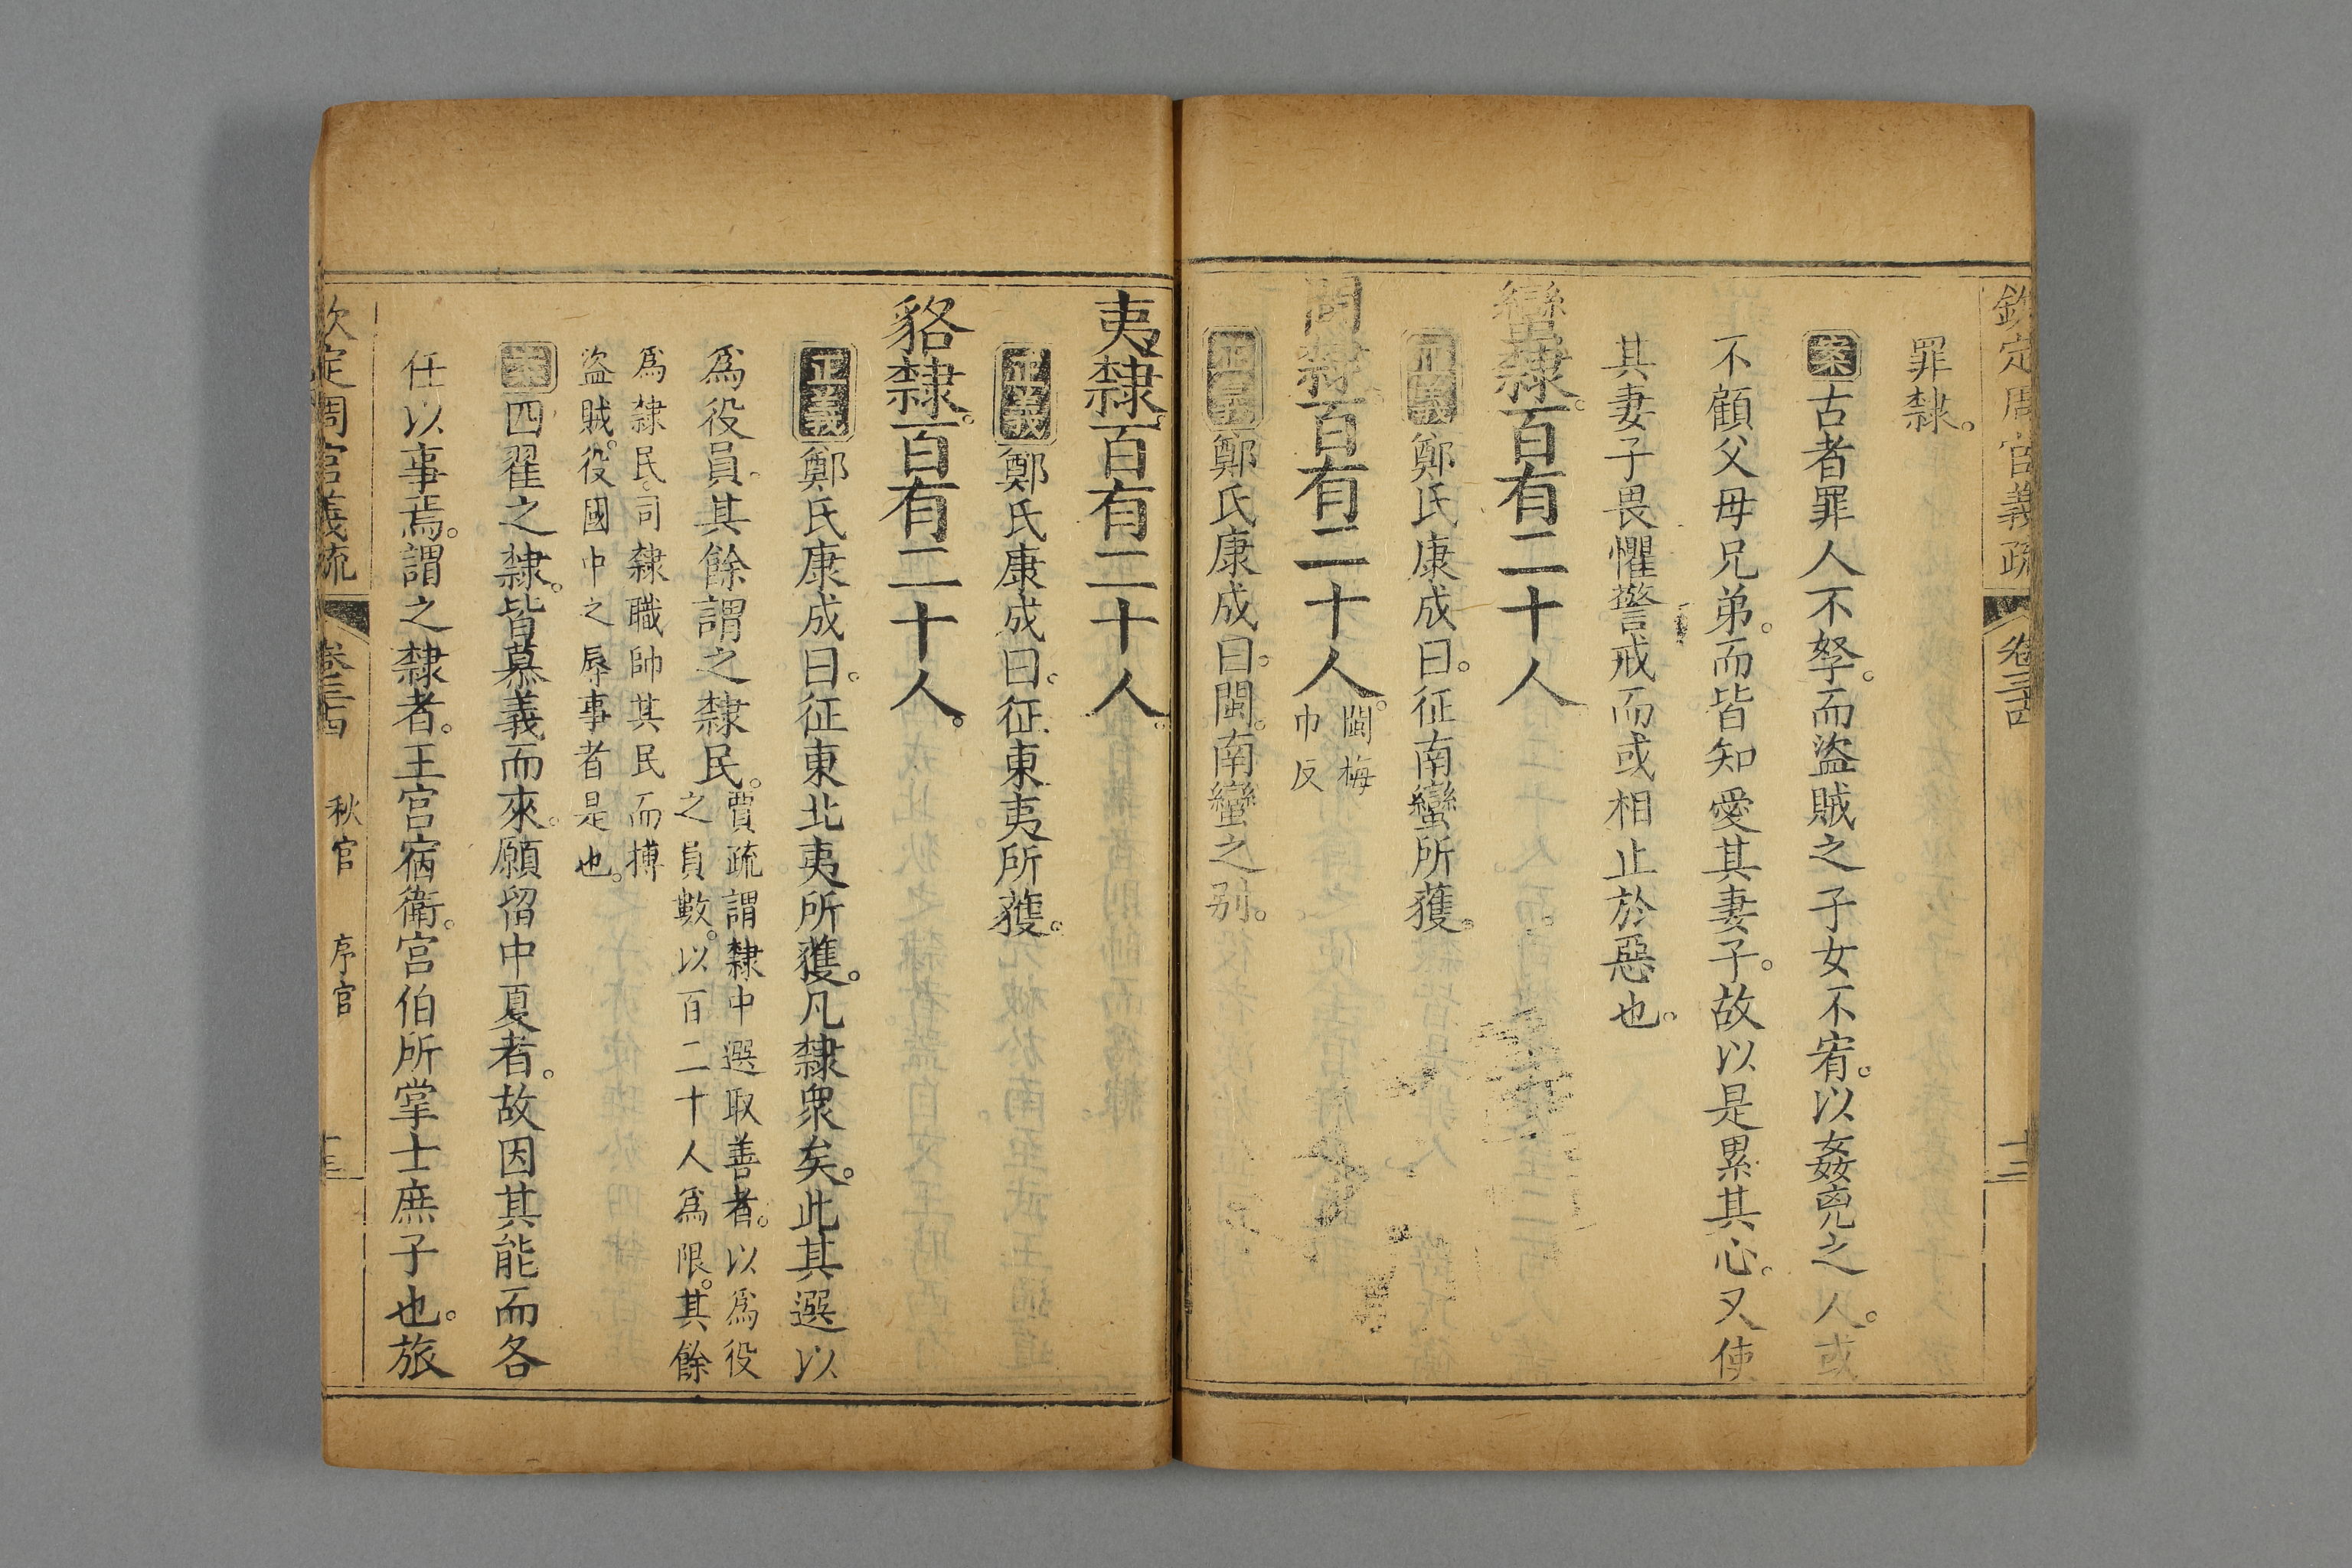 欽定周官義疏 卷三十四 十二
罪隸。
案古者罪人不孥。而盜賊之子女不宥。以姦宄之人。或
不顧父母兄弟。而皆知愛其妻子。故以是累其心。又使
其妻子畏懼警戒而或相止於惡也。
蠻隸。百有二十人
正義鄭氏康成曰。征南蠻所獲。
閩隸。百有二十人。閩梅
巾反
正義鄭氏康成曰。閩。南蠻之别。
夷隸。百有二十人。
正義鄭氏康成曰。征東夷所獲。
貉隸。百有二十人。
正義鄭氏康成曰。征東北夷所獲。凡隸衆矣。此其選以
爲役員。其餘謂之隸民。賈疏謂隸中選取善者。以爲役
之員數。以百二十人爲限。其餘
爲隸民。司隸職帥其民而搏
盜賊。役國中之辱事者是也。
案四翟之隸。皆慕義而來。願留中夏者。故因其能而各
任以事焉。謂之隸者。王宫宿衛。宫伯所掌士庶子也。旅
欽定周官義疏 卷三十四 秋官 序官 十三